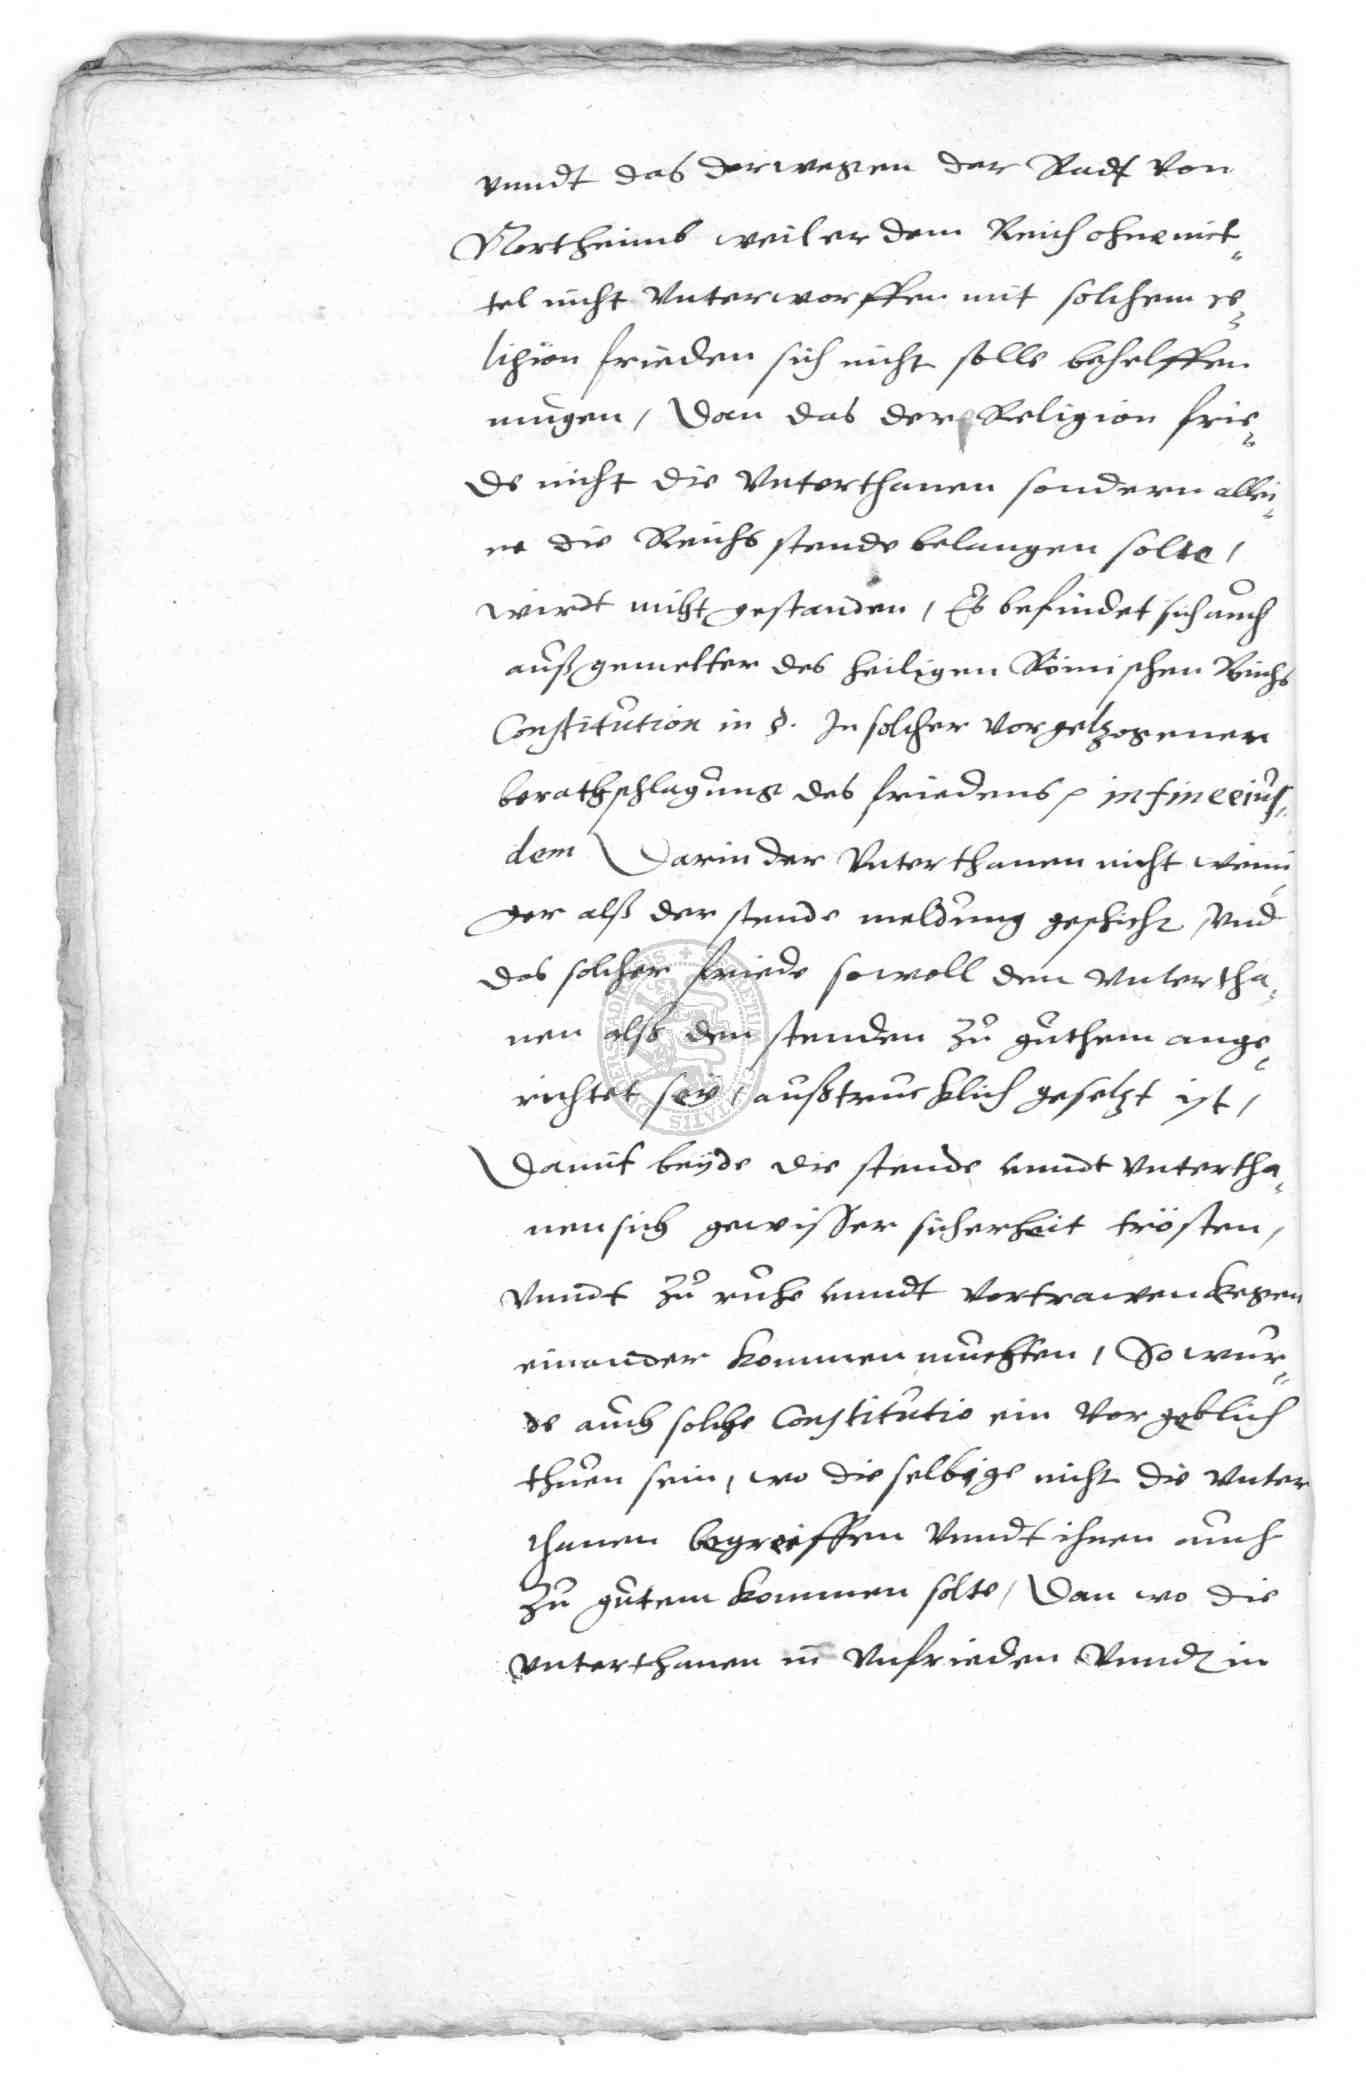 vnndt das derwegen der Radt von
Northeimb weil er dem Reich ohne mit„
tel nicht vnterworffen mit solchem re„
ligion frieden sich nicht solle behelffen
mugen, Dan das der Religion frie„
de nicht die vnterthanen sondern allei„
ne die Reichs stende belangen solte,
wirdt nicht gestanden, Es befindet sich auch
auß gemelter des heiligen Römischen Reichs
Constitution in §. In solcher vorgeltzogener
berathschlagung des friedens in fine eius„
dem Darin der vnterthanen nicht weini
ger alß der stende meldung geschicht, vnd
das solcher friede sowoll den vntertha„
nen alß den stenden zu guthem ange„
richtet sey, außtrucklich gesetzt ist,
Damit beyde die stende vnndt vntertha„
nen sich gewisser sicherheit trösten,
vnndt zu ruhe vnndt vertrawen kegen
einander kommen muchten, So wur„
de auch solche Constitutio ein vergeblich
thuen sein, wo dieselbige nicht die vnter
thanen begreiffen vnndt ihnen auch
zu gutem kommen solte, Dan wo die
vnterthanen in vnfrieden vnndt in